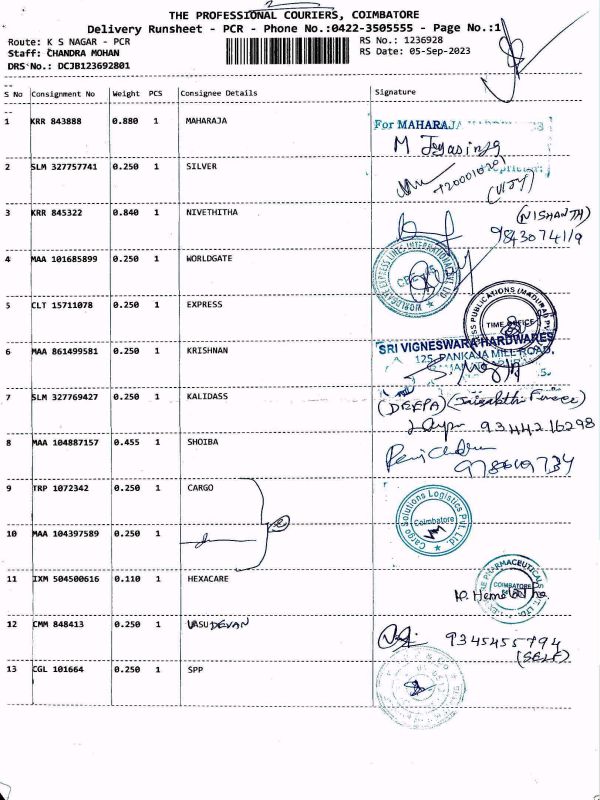 THE PROFESSIONAL COURIERS, COIMBATORE
Delivery Runsheet - PCR - Phone No.:0422-3505555 - Page No.:1
Route: K S NAGAR - PCR
Staff: CHANDRA MOHAN
DRS No.: DCJB123692801
RS No.: 1236928
RS Date: 05-Sep-2023
S No Consignment No Weight PCS Consignee Details Signature
1 KRR 843888 0.880 1 MAHARAJA
For MAHARAJA
M Jeyasingh
2 SLM 327757741 0.250 1 SILVER
(VIJY)
3 KRR 845322 0.840 1 NIVETHITHA
(NISHANTH)
4 MAA 101685899 0.250 1 WORLDGATE
WORLDGATE EXPRESS LINES INTERNATIONAL PVT LTD
5 CLT 15711078 0.250 1 EXPRESS
EXPRESS PUBLICATIONS (MADURAI) PVT
TIME OFFICE
6 MAA 861499581 0.250 1 KRISHNAN
SRI VIGNESWARA HARDWARES
125, PANKAJA MILL ROAD,
7 SLM 327769427 0.250 1 KALIDASS
(DEEPA)
9344216298
8 MAA 104887157 0.455 1 SHOIBA
9 TRP 1072342 0.250 1 CARGO
Cargo Solutions Logistics Pvt. Ltd.
Coimbatore
10 MAA 104397589 0.250 1
11 IXM 504500616 0.110 1 HEXACARE
PHARMACEUTICALS
COIMBATORE
12 CMM 848413 0.250 1 VASUDEVAN
9345455794
(SELF)
13 CGL 101664 0.250 1 SPP